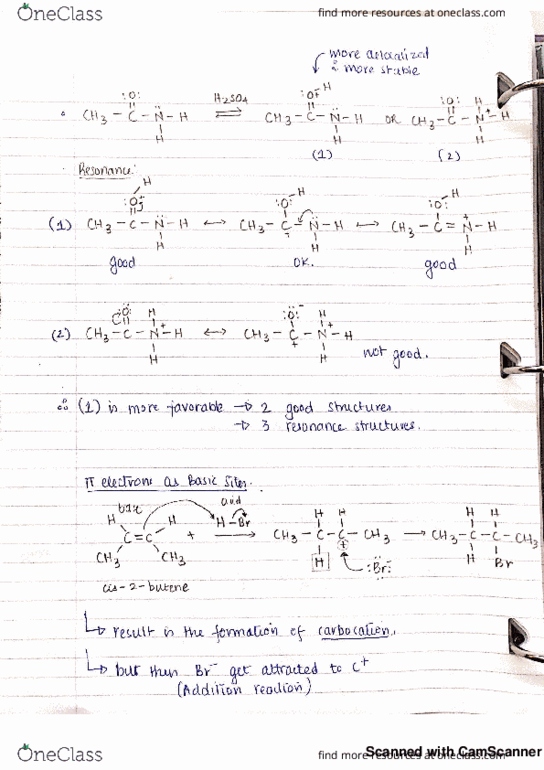 OneClass
find more resources at oneclass.com
more delocalized
& more stable
CH₃ - C - N̈ - H ⇌ H₂SO₄ CH₃ - C - N̈ - H OR CH₃ - C - N⁺ - H
(1) (2)
Resonance:
(1) CH₃ - C - N̈ - H ↔ CH₃ - C - N̈ - H ↔ CH₃ - C = N⁺ - H
good OK. good
(2) CH₃ - C - N⁺ - H ↔ CH₃ - C - N⁺ - H not good.
∴ (1) is more favorable → 2 good structures
→ 3 resonance structures.
π electrons as Basic Sites.
base acid
H H H - Br H H H H
C = C + → CH₃ - C - C - CH₃ → CH₃ - C - C - CH₃
CH₃ CH₃ H :Br:⁻ H Br
cis-2-butene
↳ result in the formation of carbocation.
↳ but then Br⁻ get attracted to C⁺
(Addition reaction)
OneClass
find more resources at oneclass.com
Scanned with CamScanner